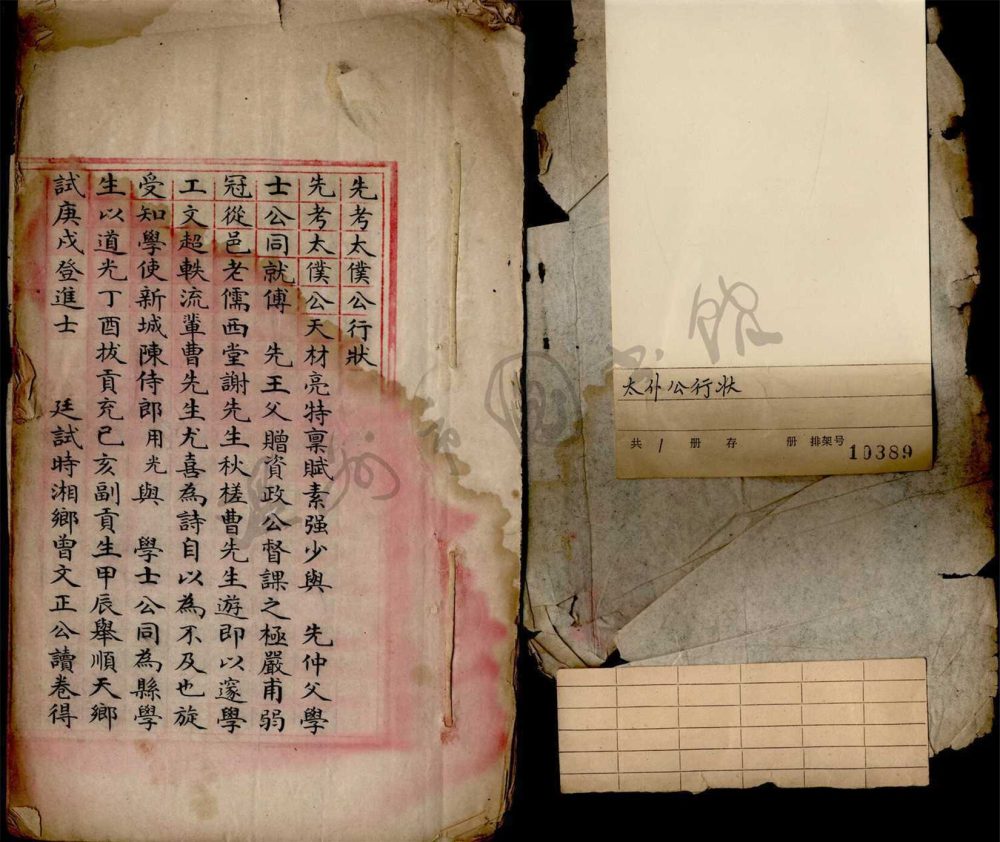 先考太僕公行狀
先考太僕公天材亮特稟賦素强少與　先仲父學
士公同就傅　先王父贈資政公督課之極嚴甫弱
冠從邑老儒西堂謝先生秋槎曹先生遊即以邃學
工文超軼流輩曹先生尤喜為詩自以為不及也旋
受知學使新城陳侍郎用光與　學士公同為縣學
生以道光丁酉拔貢充己亥副貢生甲辰舉順天鄉
試庚戌登進士　廷試時湘鄉曾文正公讀卷得
太仆公行状
共 1 册 存 册 排架号 10389